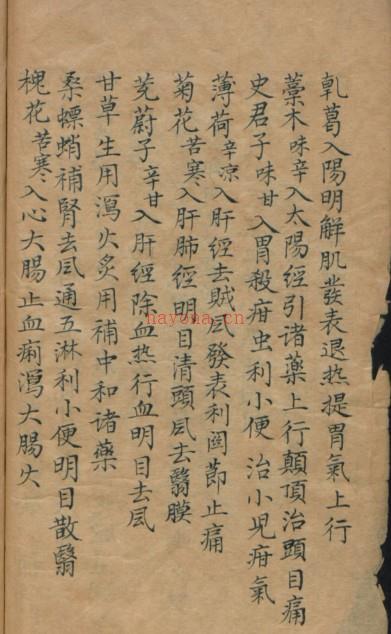 乹葛入陽明解肌發表退热提胃氣上行
藁木味辛入太陽經引诸藥上行顛頂治頭目痛
史君子味甘入胃殺疳虫利小便治小児疳氣
薄荷辛凉入肝經去賊凨發表利関節止痛
菊花苦寒入肝肺經明目清頭凨去翳膜
茺蔚子辛甘入肝經降血热行血明目去凨
甘草生用瀉火炙用補中和诸藥
桑螵蛸補腎去凨通五淋利小便明目散翳
槐花苦寒入心大腸止血痢瀉大腸火
nayona.cn